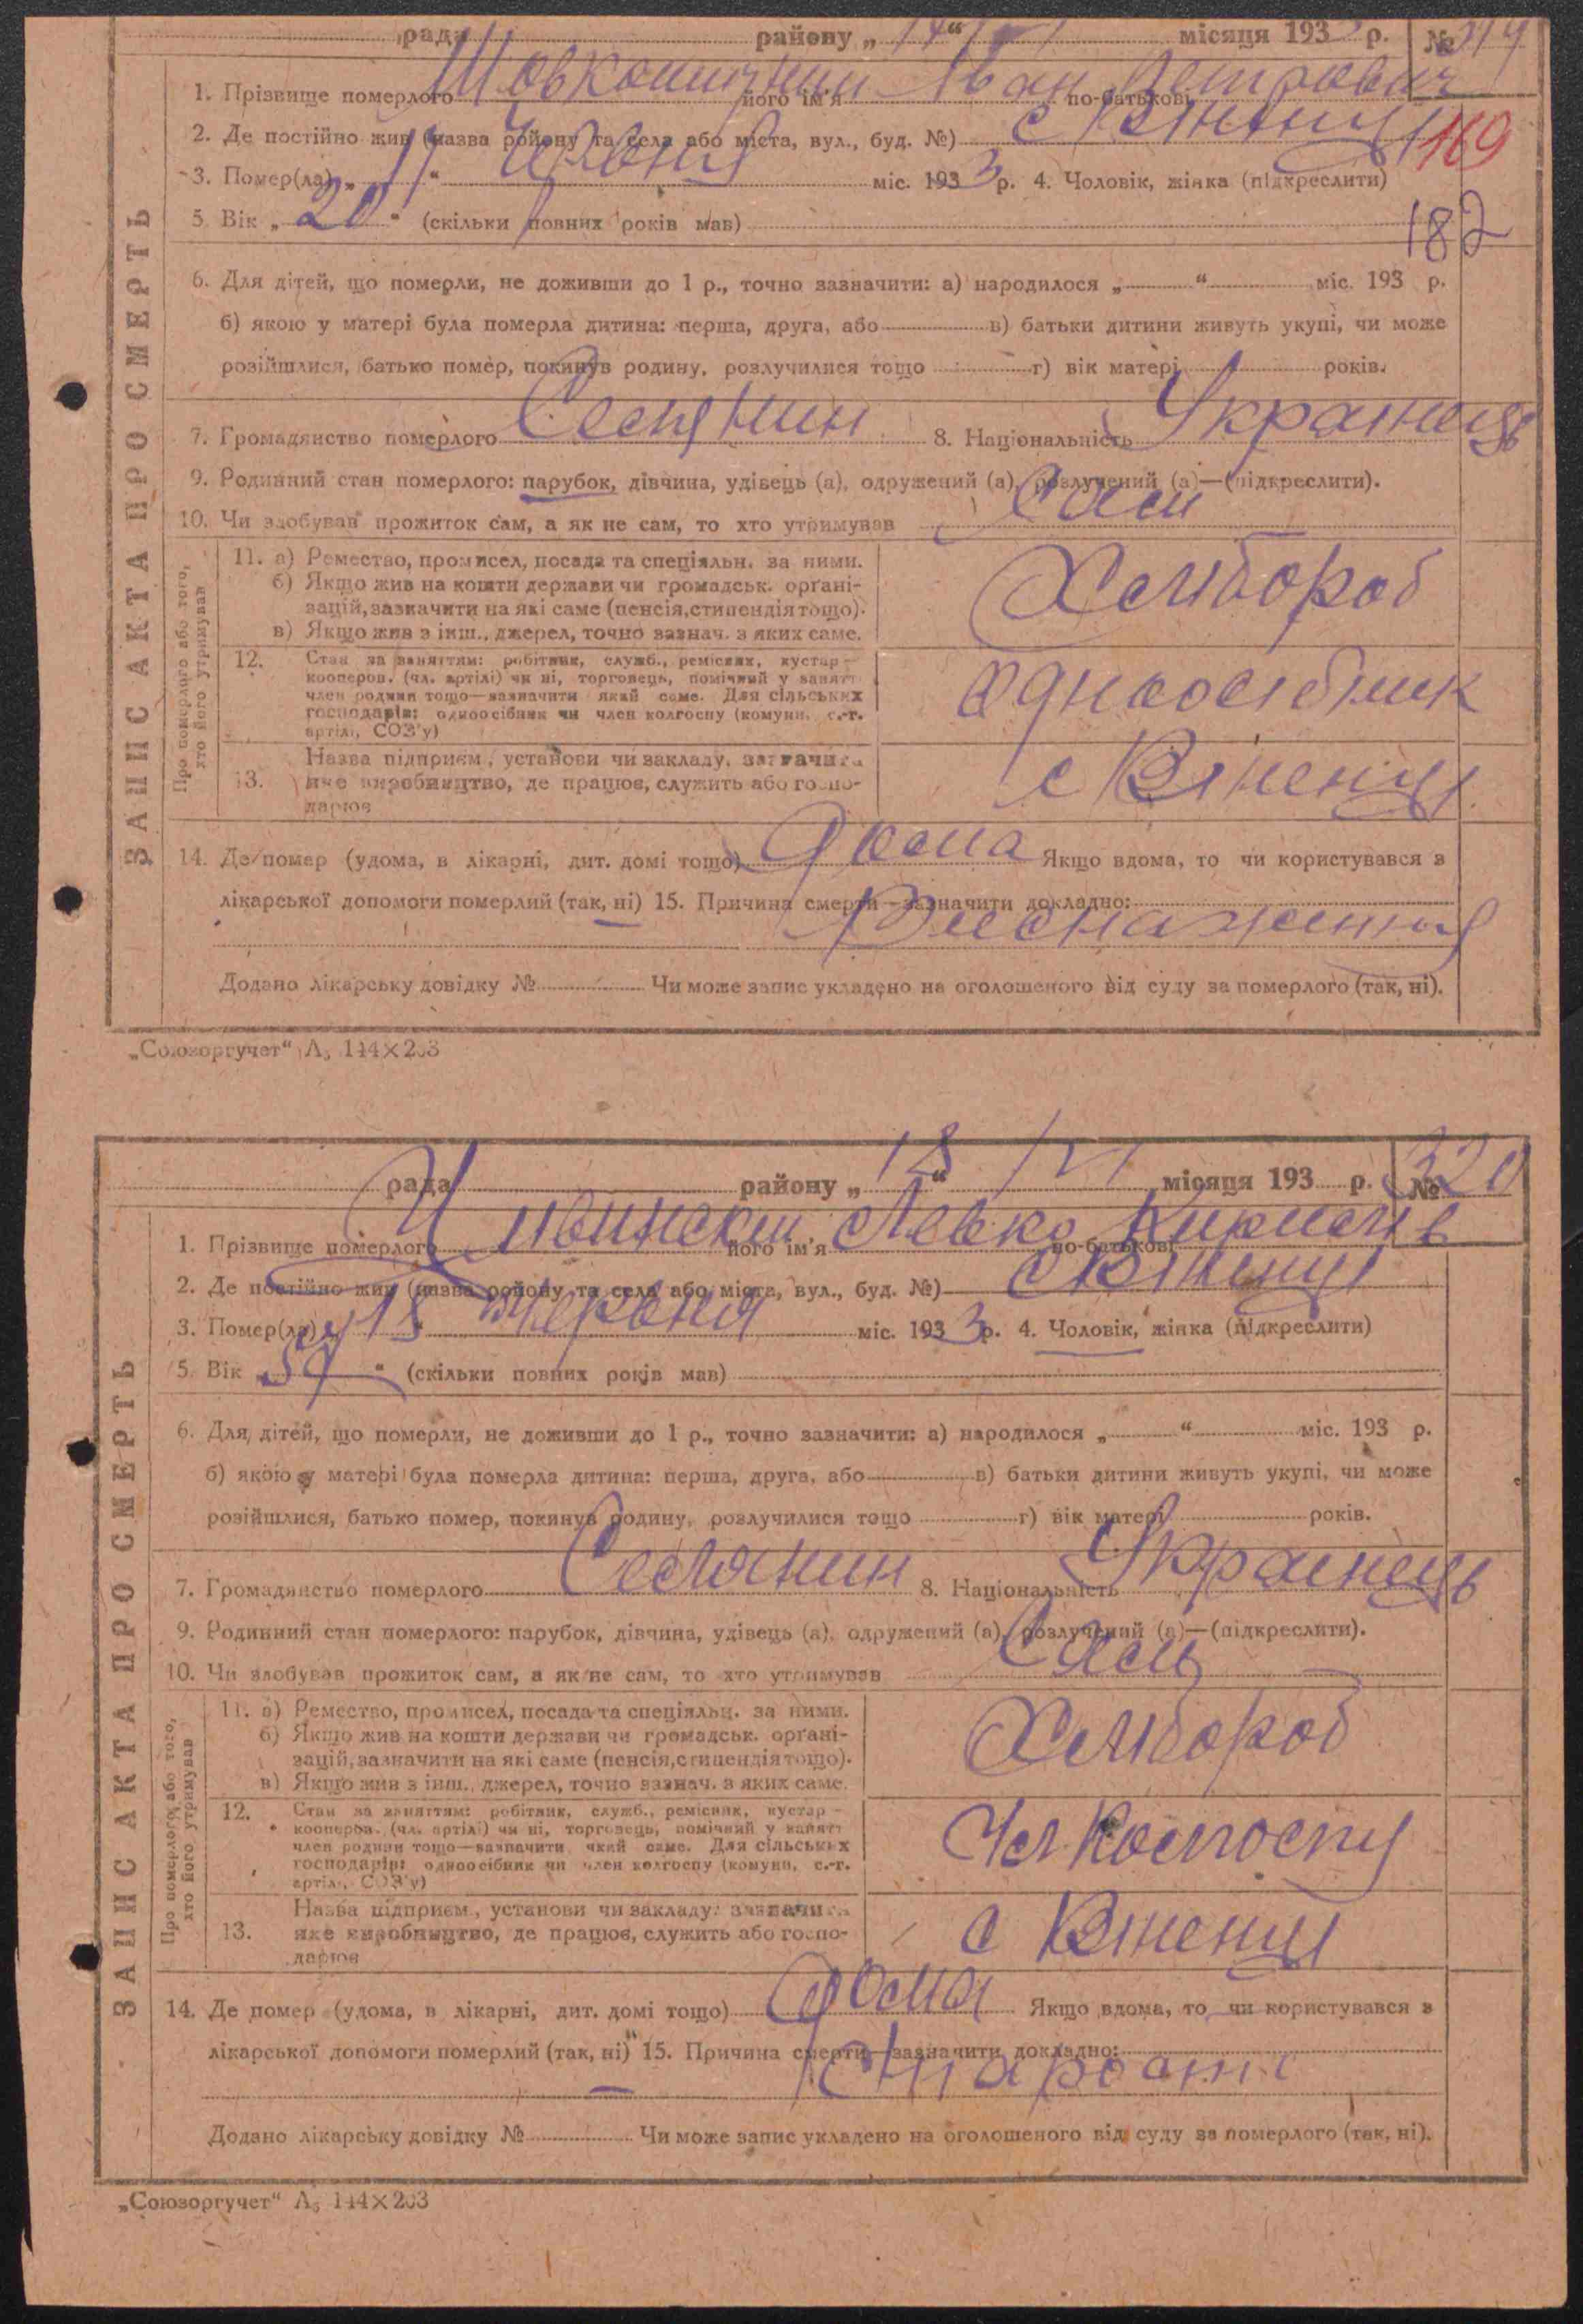 рада району „ 17 “ VI місяця 193 р. № 319
1. Прізвище померлого Шовкошитний його ім'я Іван по-батькові Петрович
2. Де постійно жив (назва району та села або міста, вул., буд. №) с
169
3. Помер(ла) „ 17 “ Червня міс. 1933 р. 4. Чоловік, жінка (підкреслити)
5. Вік „ 20 “ (скільки повних років мав)
182
6. Для дітей, що померли, не доживши до 1 р., точно зазначити: а) народилося „ “ міс. 193 р.
б) якою у матері була померла дитина: перша, друга, або в) батьки дитини живуть укупі, чи може
розійшлися, батько помер, покинув родину, розлучилися тощо г) вік матері років.
7. Громадянство померлого Селянин 8. Національність Украинець
9. Родинний стан померлого: парубок, дівчина, удівець (а), одружений (а), розлучений (а)—(підкреслити).
10. Чи здобував прожиток сам, а як не сам, то хто утримував Сам
ЗАПИС АКТА ПРО СМЕРТЬ
Про померлого або того,
хто його утримував
11. а) Ремество, промисел, посада та спеціяльн. за ними.
б) Якщо жив на кошти держави чи громадськ. орґані-
зацій, зазначити на які саме (пенсія, стипендія тощо).
в) Якщо жив з інш., джерел, точно зазнач. з яких саме.
Хлібороб
12. Стан за заняттям: робітник, служб., ремісник, кустар -
кооперов. (чл. артілі) чи ні, торговець, помічний у занятт
член родини тощо—зазначити який саме. Для сільських
господарів: одноосібник чи член колгоспу (комуни, с.-г.
артілі, СОЗ'у)
одноосібник
13. Назва підприєм., установи чи закладу, зазначити
яке виробництво, де працює, служить або госпо-
дарює
с Вінениця
14. Де помер (удома, в лікарні, дит. домі тощо) Дома Якщо вдома, то чи користувався з
лікарської допомоги померлий (так, ні) 15. Причина смерти—зазначити докладно:
Виснаження
Додано лікарську довідку № Чи може запис укладено на оголошеного від суду за померлого (так, ні).
„Союзоргучет“ А₅ 144×203
рада району „ 18 “ VI місяця 193 р. № 320
1. Прізвище померлого його ім'я Левко по-батькові
2. Де постійно жив (назва району та села або міста, вул., буд. №) с Вінениця
3. Помер(ла) „ 18 “ червня міс. 1933 р. 4. Чоловік, жінка (підкреслити)
5. Вік „ 59 “ (скільки повних років мав)
6. Для дітей, що померли, не доживши до 1 р., точно зазначити: а) народилося „ “ міс. 193 р.
б) якою у матері була померла дитина: перша, друга, або в) батьки дитини живуть укупі, чи може
розійшлися, батько помер, покинув родину, розлучилися тощо г) вік матері років.
7. Громадянство померлого Селянин 8. Національність Украинець
9. Родинний стан померлого: парубок, дівчина, удівець (а), одружений (а), розлучений (а)—(підкреслити).
10. Чи здобував прожиток сам, а як не сам, то хто утримував Сам
ЗАПИС АКТА ПРО СМЕРТЬ
Про померлого або того,
хто його утримував
11. а) Ремество, промисел, посада та спеціяльн. за ними.
б) Якщо жив на кошти держави чи громадськ. орґані-
зацій, зазначити на які саме (пенсія, стипендія тощо).
в) Якщо жив з інш., джерел, точно зазнач. з яких саме.
Хлібороб
12. Стан за заняттям: робітник, служб., ремісник, кустар -
кооперов. (чл. артілі) чи ні, торговець, помічний у занятт
член родини тощо—зазначити який саме. Для сільських
господарів: одноосібник чи член колгоспу (комуни, с.-г.
артілі, СОЗ'у)
Чл Колгоспу
13. Назва підприєм., установи чи закладу, зазначити
яке виробництво, де працює, служить або госпо-
дарює
с Вінениця
14. Де помер (удома, в лікарні, дит. домі тощо) Дома Якщо вдома, то чи користувався з
лікарської допомоги померлий (так, ні) 15. Причина смерти—зазначити докладно:
Додано лікарську довідку № Чи може запис укладено на оголошеного від суду за померлого (так, ні).
„Союзоргучет“ А₅ 144×203